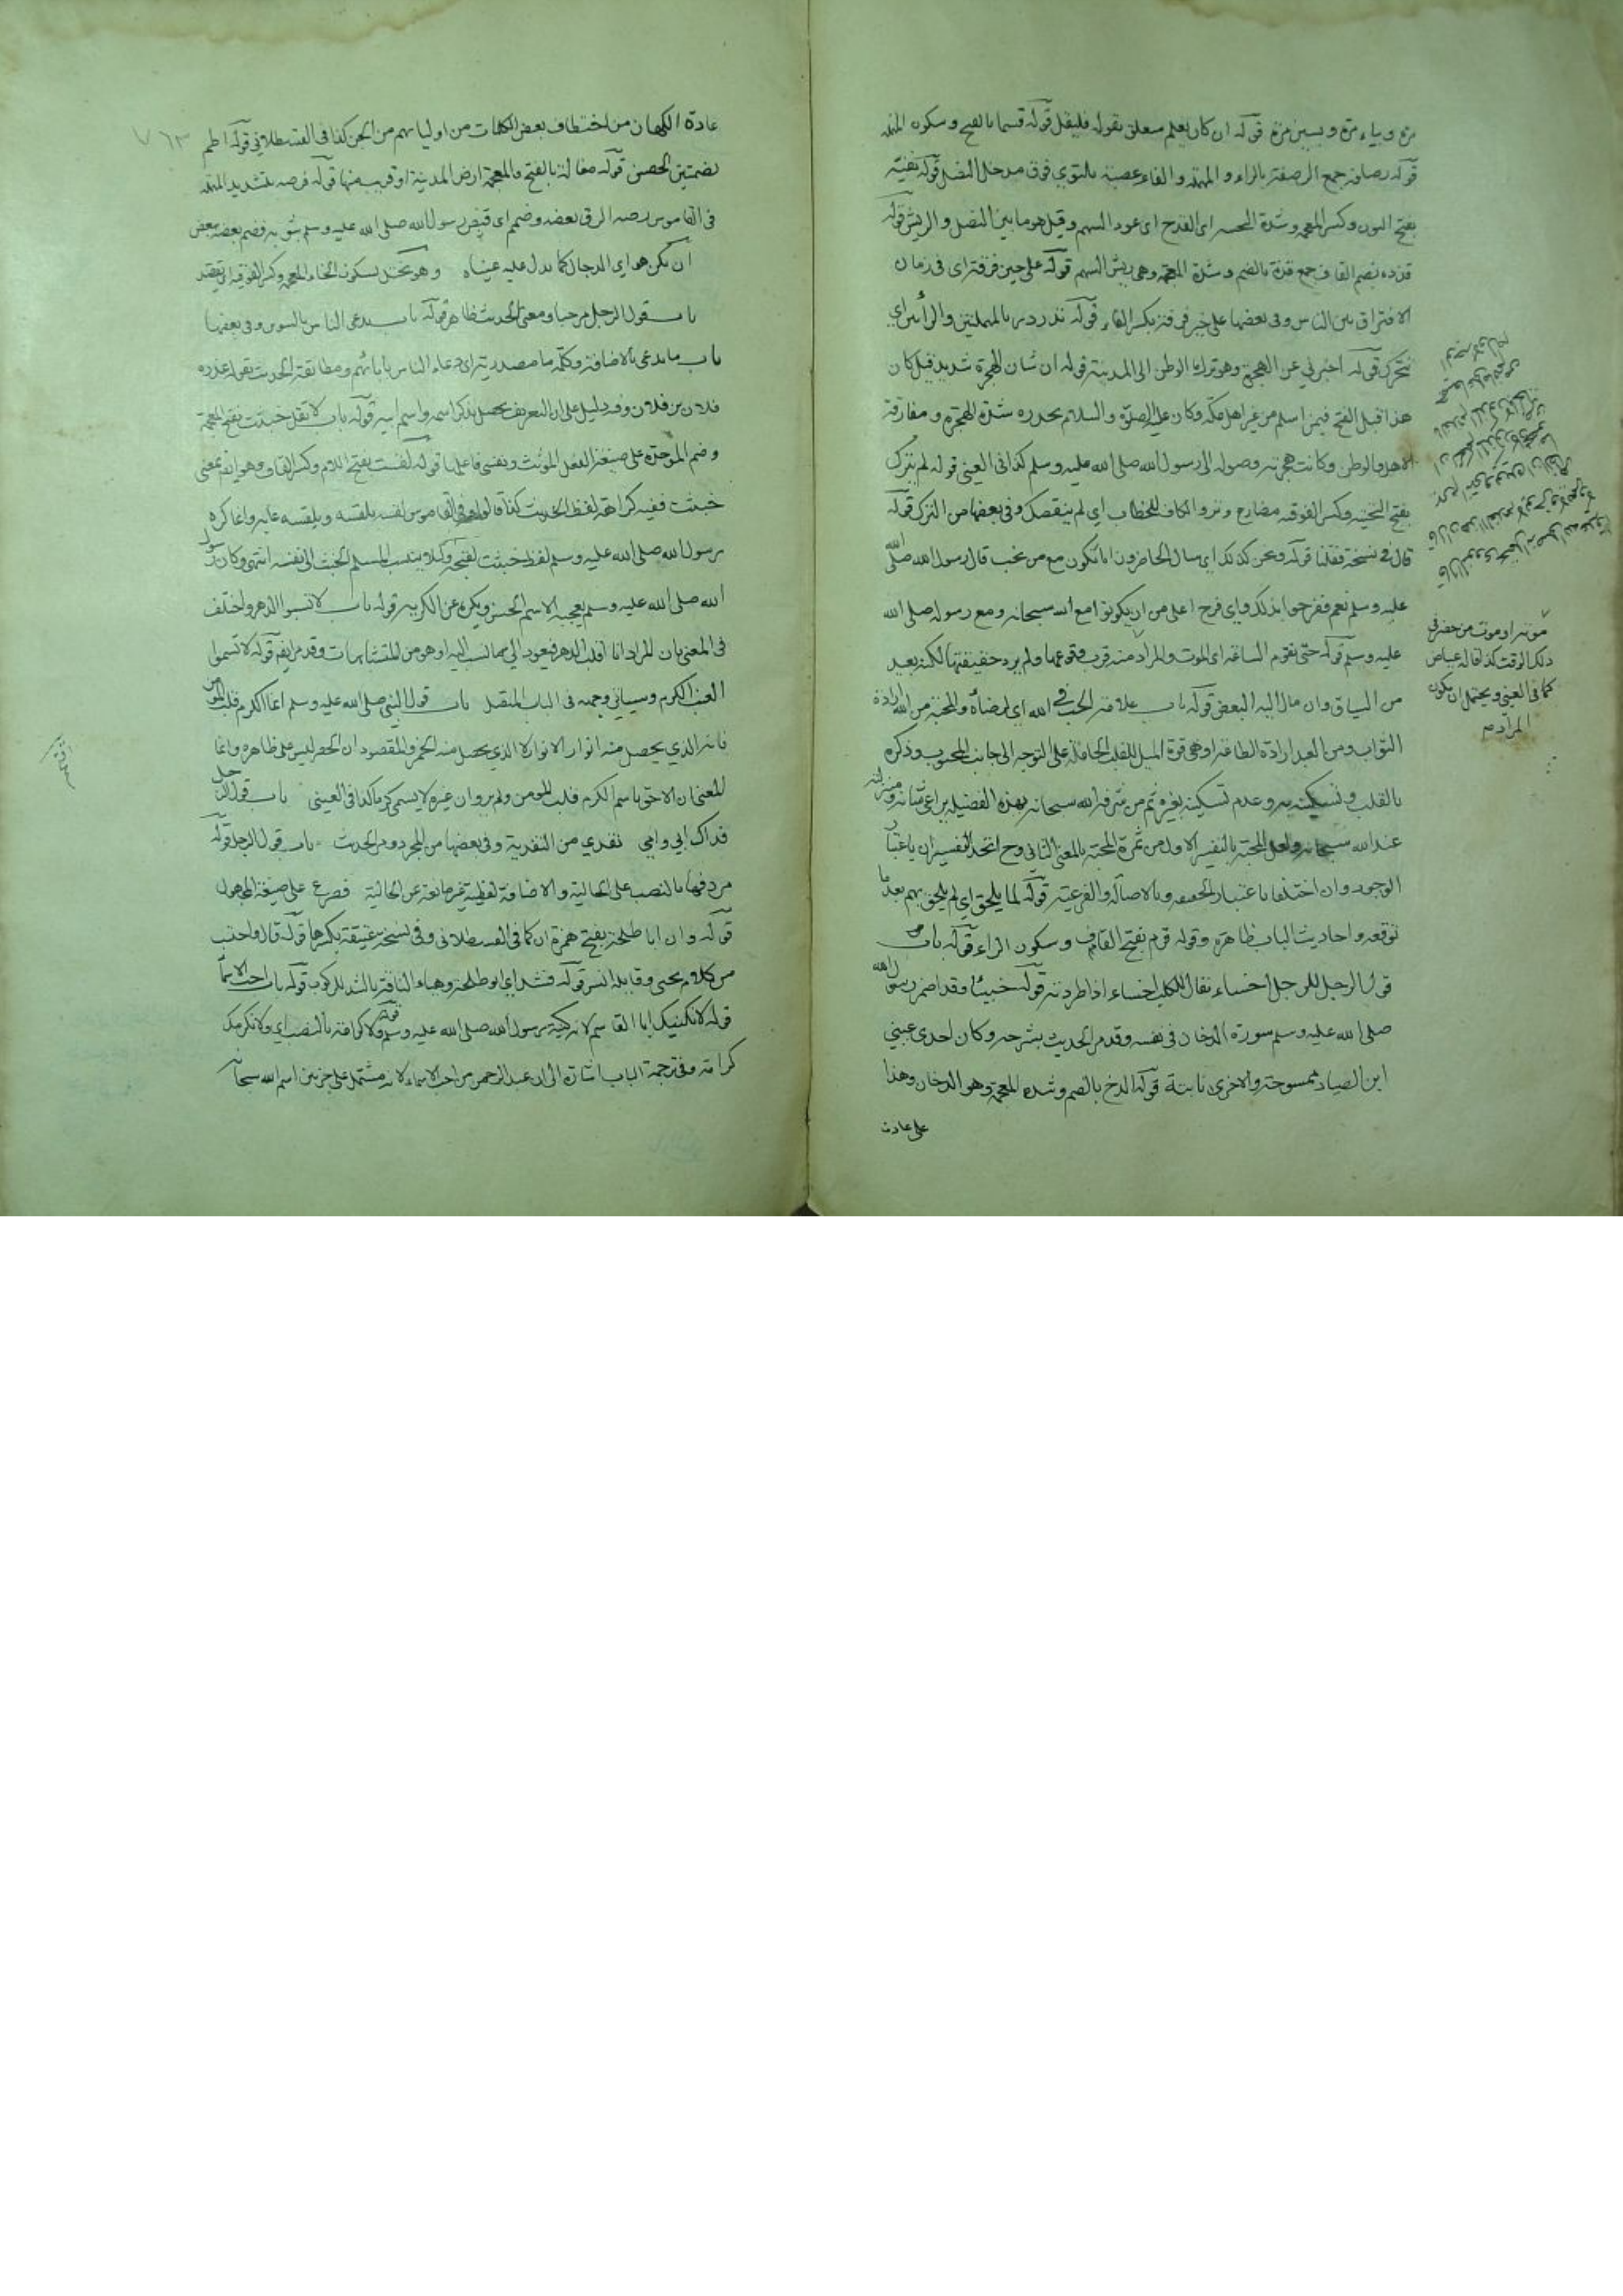 مرة وبياء مرة وبسين مرة قوله ان كان يعلم متعلق بقوله فليقل قوله قسما بالفتح وسكون المهملة
قوله رصافه جمع الرصفة بالراء والمهملة والفاء عصبة بالتوى فوق مدخل النصل قوله نضيه
بفتح النون وكسر المعجمة وشدة التحتية اى القدح اى عود السهم وقيل هو ما بين النصل والريش قوله
قذذه بضم القاف جمع قذة بالضم وشدة المعجمة وهى ريش السهم قوله على حين فرقة اى فى زمان
الافتراق بين الناس وفى بعضها على خير فرقة بكسر الفاء قوله تدردر بالمهملتين والرائين اى
تتحرك قوله اخبرني عن الهجرة وهو ترك الوطن الى المدينة قوله ان شان الهجرة شديد قيل كان
هذا قبل الفتح فيمن اسلم من غير اهل مكة وكان عليه الصلوة والسلام يحذره شدة الهجرة ومفارقة
الاهل والوطن وكانت هجرته وصوله الى رسول الله صلى الله عليه وسلم كذا فى العيني قوله لم يترك
بفتح التحتية وكسر الفوقية مضارع وتر والكاف للخطاب اي لم ينقصك وفى بعضها من الترك قوله
قال فى نسخة فقلنا قوله ونحن كذلك اى سال الحاضرون انا نكون مع من نحب قال رسول الله صلى الله
عليه وسلم نعم ففرحوا بذلك واى فرح اعلى من ان يكونوا مع الله سبحانه ومع رسوله صلى الله
عليه وسلم قوله حتى تقوم الساعة اى الموت والمراد منه قرب وقوعها ولم يرد حقيقتها لكنه بعيد
من السياق وان مال اليه البعض قوله باب علامة الحب فى الله اى لمرضاته والمحبة من الله ارادة
الثواب ومن العبد ارادة الطاعة او هى قوة الميل للقلب الحاملة على التوجه الى جانب المحبوب وذكره
بالقلب وتسكينه به وعدم تسكينه بغيره ثم من شرفه الله سبحانه بهذه الفضيلة يراعى شانه ومنزلته
عند الله سبحانه ولعل المحبة بالتفسير الاول من ثمرة المحبة بالمعنى الثانى وح اتحد التفسيران باعتبار
الوجود وان اختلفا باعتبار الحقيقة وبالاصالة والفرعية قوله لما يلحق اي لم يلحق بهم بعد ما
توقعه واحاديث الباب ظاهرة وقوله قرم بفتح القاف وسكون الراء قوله باب
قول الرجل للرجل اخساء يقال للكلب اخساء اذا طردته قوله خبيئا وقد اضمر رسول الله
صلى الله عليه وسلم سورة الدخان فى نفسه وقد مر الحديث بشرحه وكان احدى عيني
ابن الصياد ممسوحة والاخرى ناتئة قوله الدخ بالضم وشدة المعجمة وهو الدخان وهذا
على عادة
موته او موت من حضر فى
ذلك الوقت كذا قاله عياض
كما فى العيني ويحتمل ان يكون
المراد
٧٦٣
عادة الكهان من اختطاف بعض الكلمات من اوليائهم من الجن كذا فى القسطلاني قوله اطم
بضمتين الحصن قوله مغالة بالفتح والمعجمة ارض المدينة او قريب منها قوله فرصه بتشديد المهملة
فى القاموس رصه الزق بعضه وضم اى قبض رسول الله صلى الله عليه وسلم بثوبه فضم بعضه ببعض
ان يكن هو اي الدجال كما يدل عليه عيناه وهو يختل بسكون الخاء المعجمة وكسر الفوقية اى يقصد
باب قول الرجل مرحبا ومعنى الحديث ظاهر قوله باب يدعى الناس بالسوس وفى بعضها
باب ما يدعى بالاضافة وكلمة ما مصدرية اى دعاء الناس بابائهم ومطابقة الحديث بقوله غدرة
فلان بن فلان وفيه دليل على ان التعريف يحصل بذكر اسمه واسم ابيه قوله باب لا تقل خبثت بفتح المعجمة
وضم الموحدة على صيغة الفعل المونث ونفسى فاعلها قوله لقست بفتح اللام وكسر القاف وهو ايضا بمعنى
خبثت ففيه كراهة لفظ الخبث كذا قالوا وفى القاموس لقسه يلقسه ويلقسه عابه وانما كره
رسول الله صلى الله عليه وسلم لفظ خبثت لقبحه ولئلا ينسب المسلم الخبث الى نفسه انتهى وكان رسول
الله صلى الله عليه وسلم يعجبه الاسم الحسن ويكره عن الكريه قوله باب لا تسبوا الدهر واختلف
فى المعنى بان المراد انا اقلب الدهر فيعود الي ما نسب اليه او هو من المتشابهات وقد مر ايضا قوله لا تسموا
العنب الكرم وسياتي وجهه فى الباب المتصل باب قول النبي صلى الله عليه وسلم انما الكرم قلب المومن
فانه الذي يحصل منه انوار الانوار لا الذي يحصل منه الخمر والمقصود ان الحصر ليس على ظاهره وانما
المعنى ان الاحق باسم الكرم قلب المومن ولم يرد ان غيره لا يسمى كرما كذا فى العيني باب قول الرجل
فداك ابي وامي تفدي من التفدية وفى بعضها من المجرد ومر الحديث باب قول الرجل قوله
مردفها بالنصب على الحالية والاضافة لفظية غير مانعة عن الحالية فصرع على صيغة المجهول
قوله وان ابا طلحة بفتح همزة ان كما فى القسطلانى وفى نسخة عتيقة بكسرها قوله قال واحسب
من كلام يحيى وقايله انس قوله فشد اي ابو طلحة وهياء الناقة بالشد للركوب قوله باب احب الاسماء
قوله لا نكنيك ابا القاسم لانه كنية رسول الله صلى الله عليه وسلم قوله ولا كرامة بالنصب اى ولا نكرمك
كرامة وفى ترجمة الباب اشارة الى ان عبد الرحمن من احب الاسماء لانه مشتمل على جزئين اسم الله سبحانه